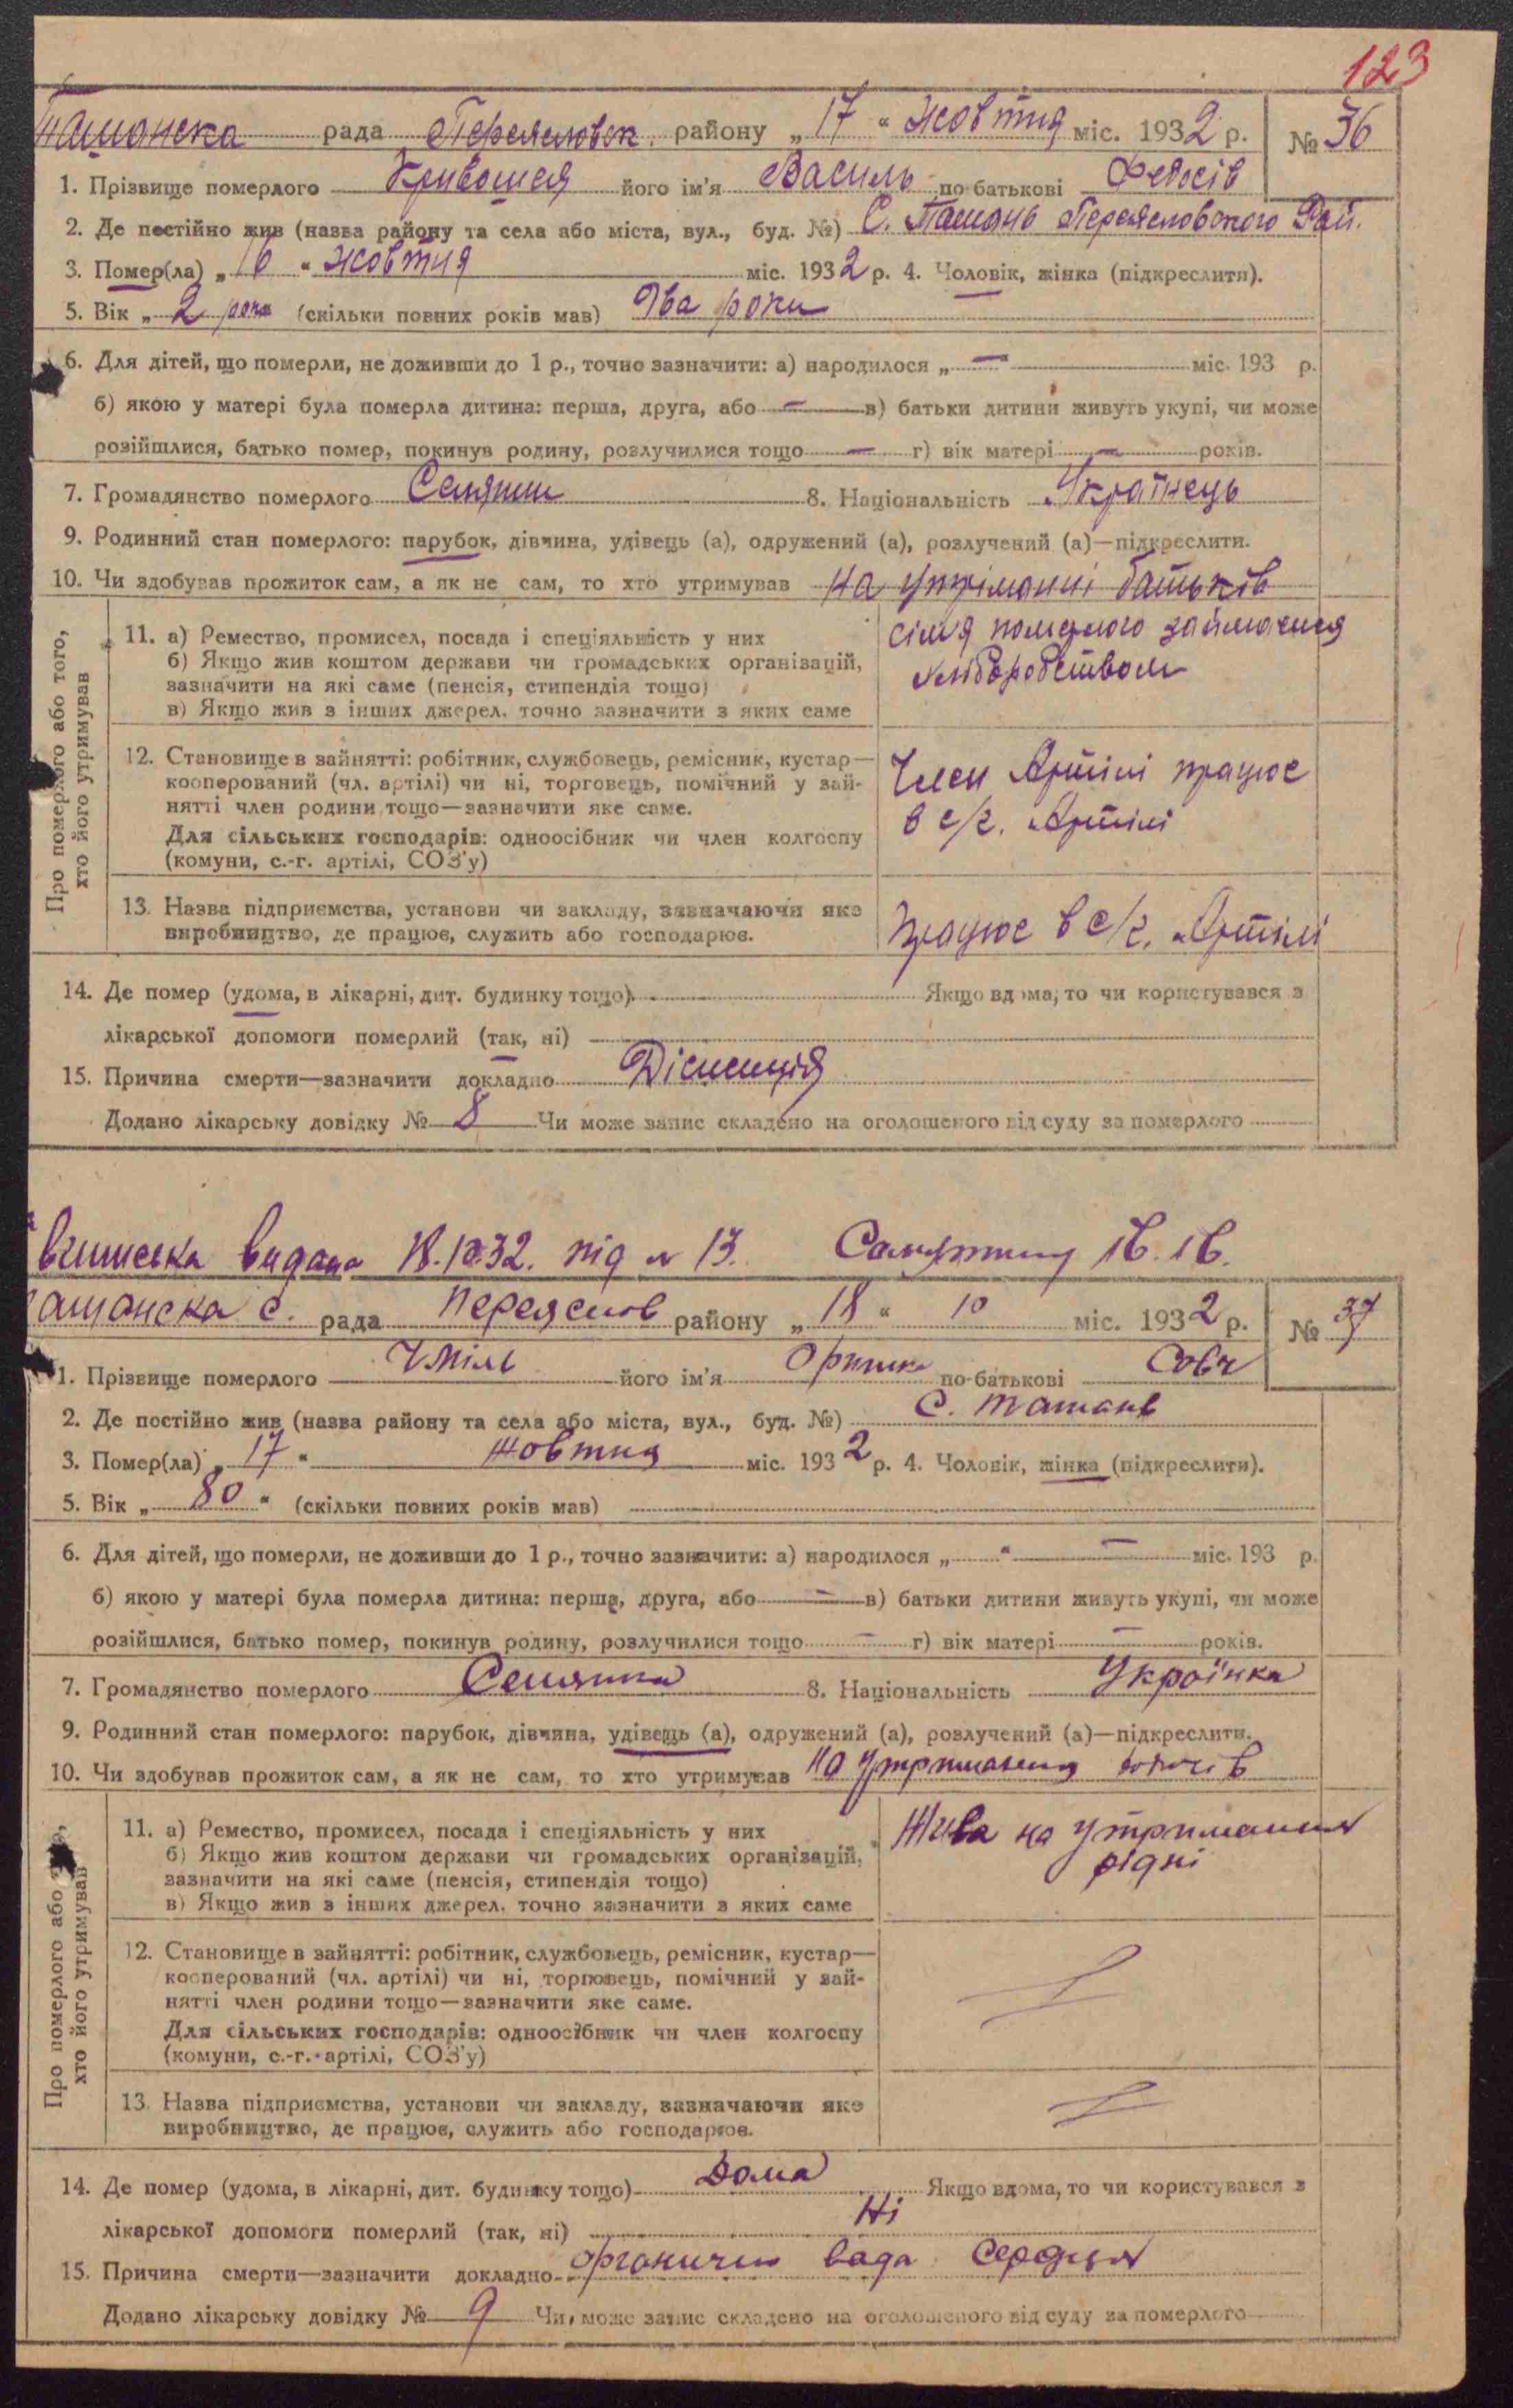 123
Ташанска рада Переяславськ. району „17“ жовтня міс. 1932 р. № 36
1. Прізвище померлого Кривошея його ім'я Василь по батькові Федосів
2. Де постійно жив (назва району та села або міста, вул., буд. №) С. Ташань Переяславського Рай.
3. Помер(ла) „16“ жовтня міс. 1932 р. 4. Чоловік, жінка (підкреслити).
5. Вік „2 роки (скільки повних років мав) Два роки
6. Для дітей, що померли, не доживши до 1 р., точно зазначити: а) народилося „—“ міс. 193 р.
б) якою у матері була померла дитина: перша, друга, або — в) батьки дитини живуть укупі, чи може
розійшлися, батько помер, покинув родину, розлучилися тощо — г) вік матері — років.
7. Громадянство померлого Селянин 8. Національність Українець
9. Родинний стан померлого: парубок, дівчина, удівець (а), одружений (а), розлучений (а)—підкреслити.
10. Чи здобував прожиток сам, а як не сам, то хто утримував на утріманні батьків
Про померлого або того, хто його утримував
11. а) Ремество, промисел, посада і спеціяльність у них
б) Якщо жив коштом держави чи громадських організацій,
зазначити на які саме (пенсія, стипендія тощо)
в) Якщо жив з інших джерел, точно зазначити з яких саме
сімя померлого займаеця
хліборобством
12. Становище в зайнятті: робітник, службовець, ремісник, кустар—
кооперований (чл. артілі) чи ні, торговець, помічний у зай-
нятті член родини тощо—зазначити яке саме.
Для сільських господарів: одноосібник чи член колгоспу
(комуни, с.-г. артілі, СОЗ'у)
Член Артілі працює
в с/г. Артілі
13. Назва підприємства, установи чи закладу, зазначаючи яке
виробництво, де працює, служить або господарює.
Працює в с/г. Артілі
14. Де помер (удома, в лікарні, дит. будинку тощо) Якщо вдома, то чи користувався з
лікарської допомоги померлий (так, ні)
15. Причина смерти—зазначити докладно
Додано лікарську довідку № 8 Чи може запис складено на оголошеного від суду за померлого
видана 18.10.32. під № 13.
с. рада Переяслов району „18“ 10 міс. 1932 р. № 37
1. Прізвище померлого Чміль його ім'я по батькові
2. Де постійно жив (назва району та села або міста, вул., буд. №) С. Ташань
3. Помер(ла) „17“ жовтня міс. 1932 р. 4. Чоловік, жінка (підкреслити).
5. Вік „80“ (скільки повних років мав)
6. Для дітей, що померли, не доживши до 1 р., точно зазначити: а) народилося „ “ — міс. 193 р.
б) якою у матері була померла дитина: перша, друга, або — в) батьки дитини живуть укупі, чи може
розійшлися, батько помер, покинув родину, розлучилися тощо — г) вік матері — років.
7. Громадянство померлого Селянка 8. Національність Українка
9. Родинний стан померлого: парубок, дівчина, удівець (а), одружений (а), розлучений (а)—підкреслити.
10. Чи здобував прожиток сам, а як не сам, то хто утримував на утримання
Про померлого або того, хто його утримував
11. а) Ремество, промисел, посада і спеціяльність у них
б) Якщо жив коштом держави чи громадських організацій,
зазначити на які саме (пенсія, стипендія тощо)
в) Якщо жив з інших джерел, точно зазначити з яких саме
Жива на утримання
рідні
12. Становище в зайнятті: робітник, службовець, ремісник, кустар—
кооперований (чл. артілі) чи ні, торговець, помічний у зай-
нятті член родини тощо—зазначити яке саме.
Для сільських господарів: одноосібник чи член колгоспу
(комуни, с.-г. артілі, СОЗ'у)
13. Назва підприємства, установи чи закладу, зазначаючи яке
виробництво, де працює, служить або господарює.
14. Де помер (удома, в лікарні, дит. будинку тощо) Дома Якщо вдома, то чи користувався з
лікарської допомоги померлий (так, ні) Ні
15. Причина смерти—зазначити докладно вада сердця
Додано лікарську довідку № 9 Чи може запис складено на оголошеного від суду за померлого